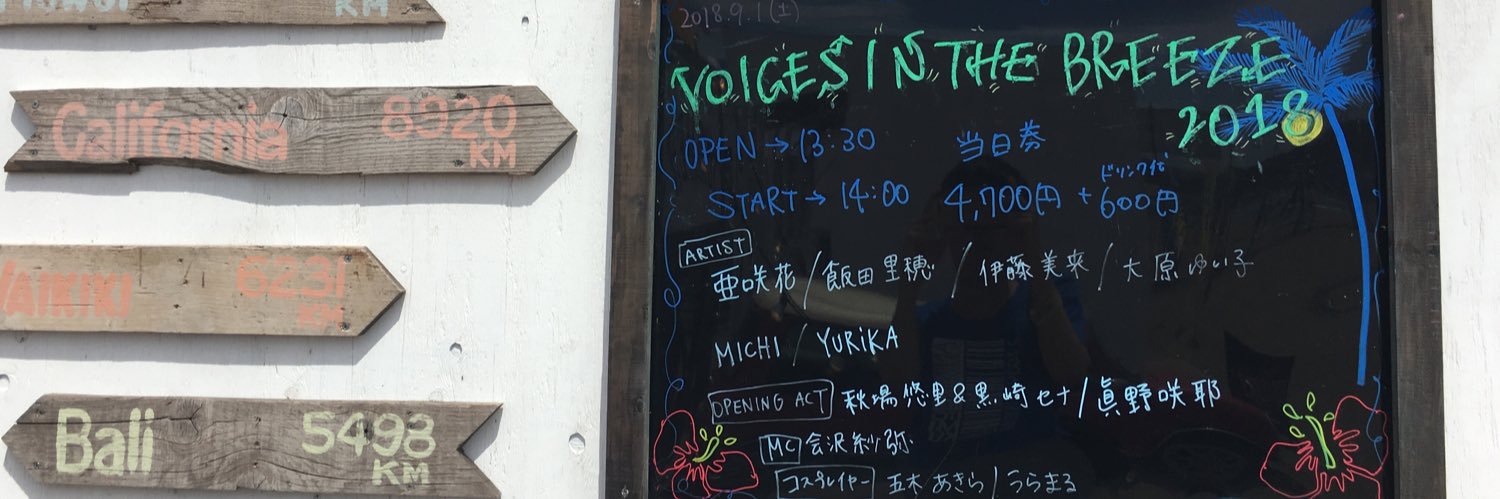 KM
California 8920
KM
WAIKIKI 6231
KM
Bali 5498
KM
2018.9.1(土)
VOICES IN THE BREEZE
2018
OPEN→13:30 当日券
ドリンク代
START→14:00 4,700円+600円
ARTIST
亜咲花/飯田里穂/伊藤美来/大原ゆい子
MICHI/YURiKA
OPENING ACT 秋場悠里&黒崎セナ/眞野咲耶
MC 会沢紗弥
コスプレイヤー 五木あきら/うらまる